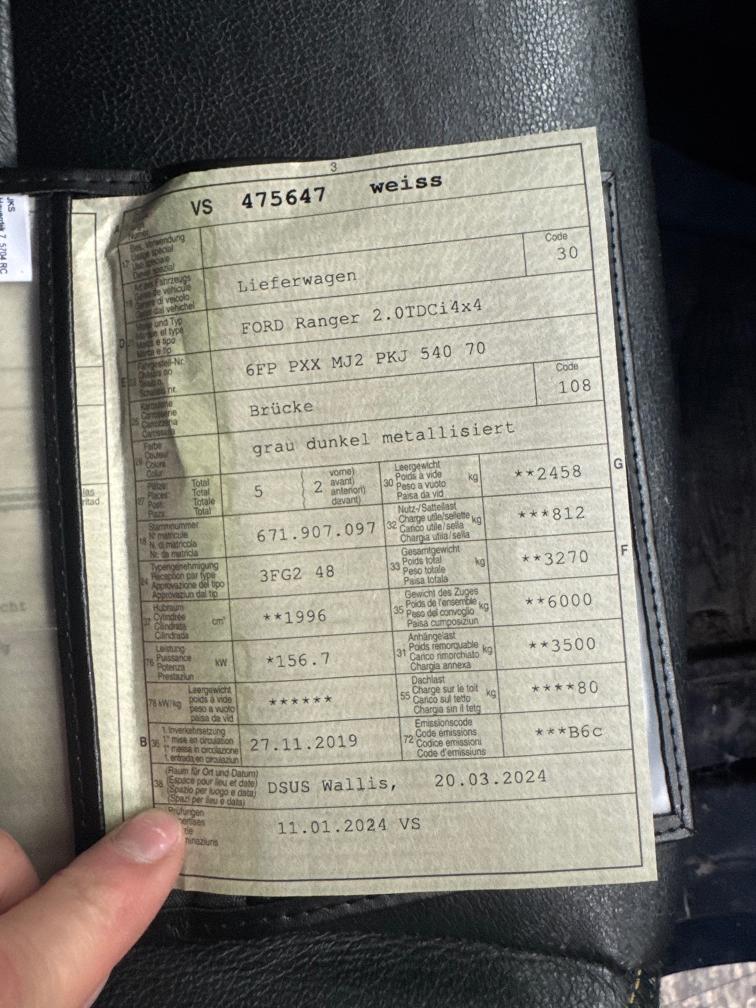 3
VS 475647 weiss
Code
30
Lieferwagen
FORD Ranger 2.0TDCi4x4
6FP PXX MJ2 PKJ 540 70
Code
108
Brücke
grau dunkel metallisiert
Total
Total
Totale
Total
5
2
vorne)
avant)
anteriori)
davant)
30 Leergewicht
Poids à vide
Peso a vuoto
Paisa da vid
kg
**2458
G
Stammnummer
N° matricule
N. di matricola
Nr. da matricla
671.907.097
32 Nutz-/Sattellast
Charge utile/sellette
Carico utile/sella
Chargia utila/sella
kg
***812
Typengenehmigung
Réception par type
Approvazione del tipo
Approvaziun dal tip
3FG2 48
33 Gesamtgewicht
Poids total
Peso totale
Paisa totala
kg
**3270
F
37 Hubraum
Cylindrée
Cilindrata
Cilindrada
cm³
**1996
35 Gewicht des Zuges
Poids de l'ensemble
Peso del convoglio
Paisa cumposiziun
kg
**6000
76 Leistung
Puissance
Potenza
Prestaziun
kW
*156.7
31 Anhängelast
Poids remorquable
Carico rimorchiato
Chargia annexa
kg
**3500
78 kW/kg
Leergewicht
poids à vide
peso a vuoto
paisa da vid
******
55 Dachlast
Charge sur le toit
Carico sul tetto
Chargia sin il tetg
kg
****80
B
36 1. Inverkehrsetzung
1re mise en circulation
1a messa in circolazione
1. entrada en circulaziun
27.11.2019
72 Emissionscode
Code émissions
Codice emissioni
Code d'emissiuns
***B6c
38 (Raum für Ort und Datum)
(Espace pour lieu et date)
(Spazio per luogo e data)
(Spazi per lieu e data)
DSUS Wallis, 20.03.2024
Prüfungen
11.01.2024 VS